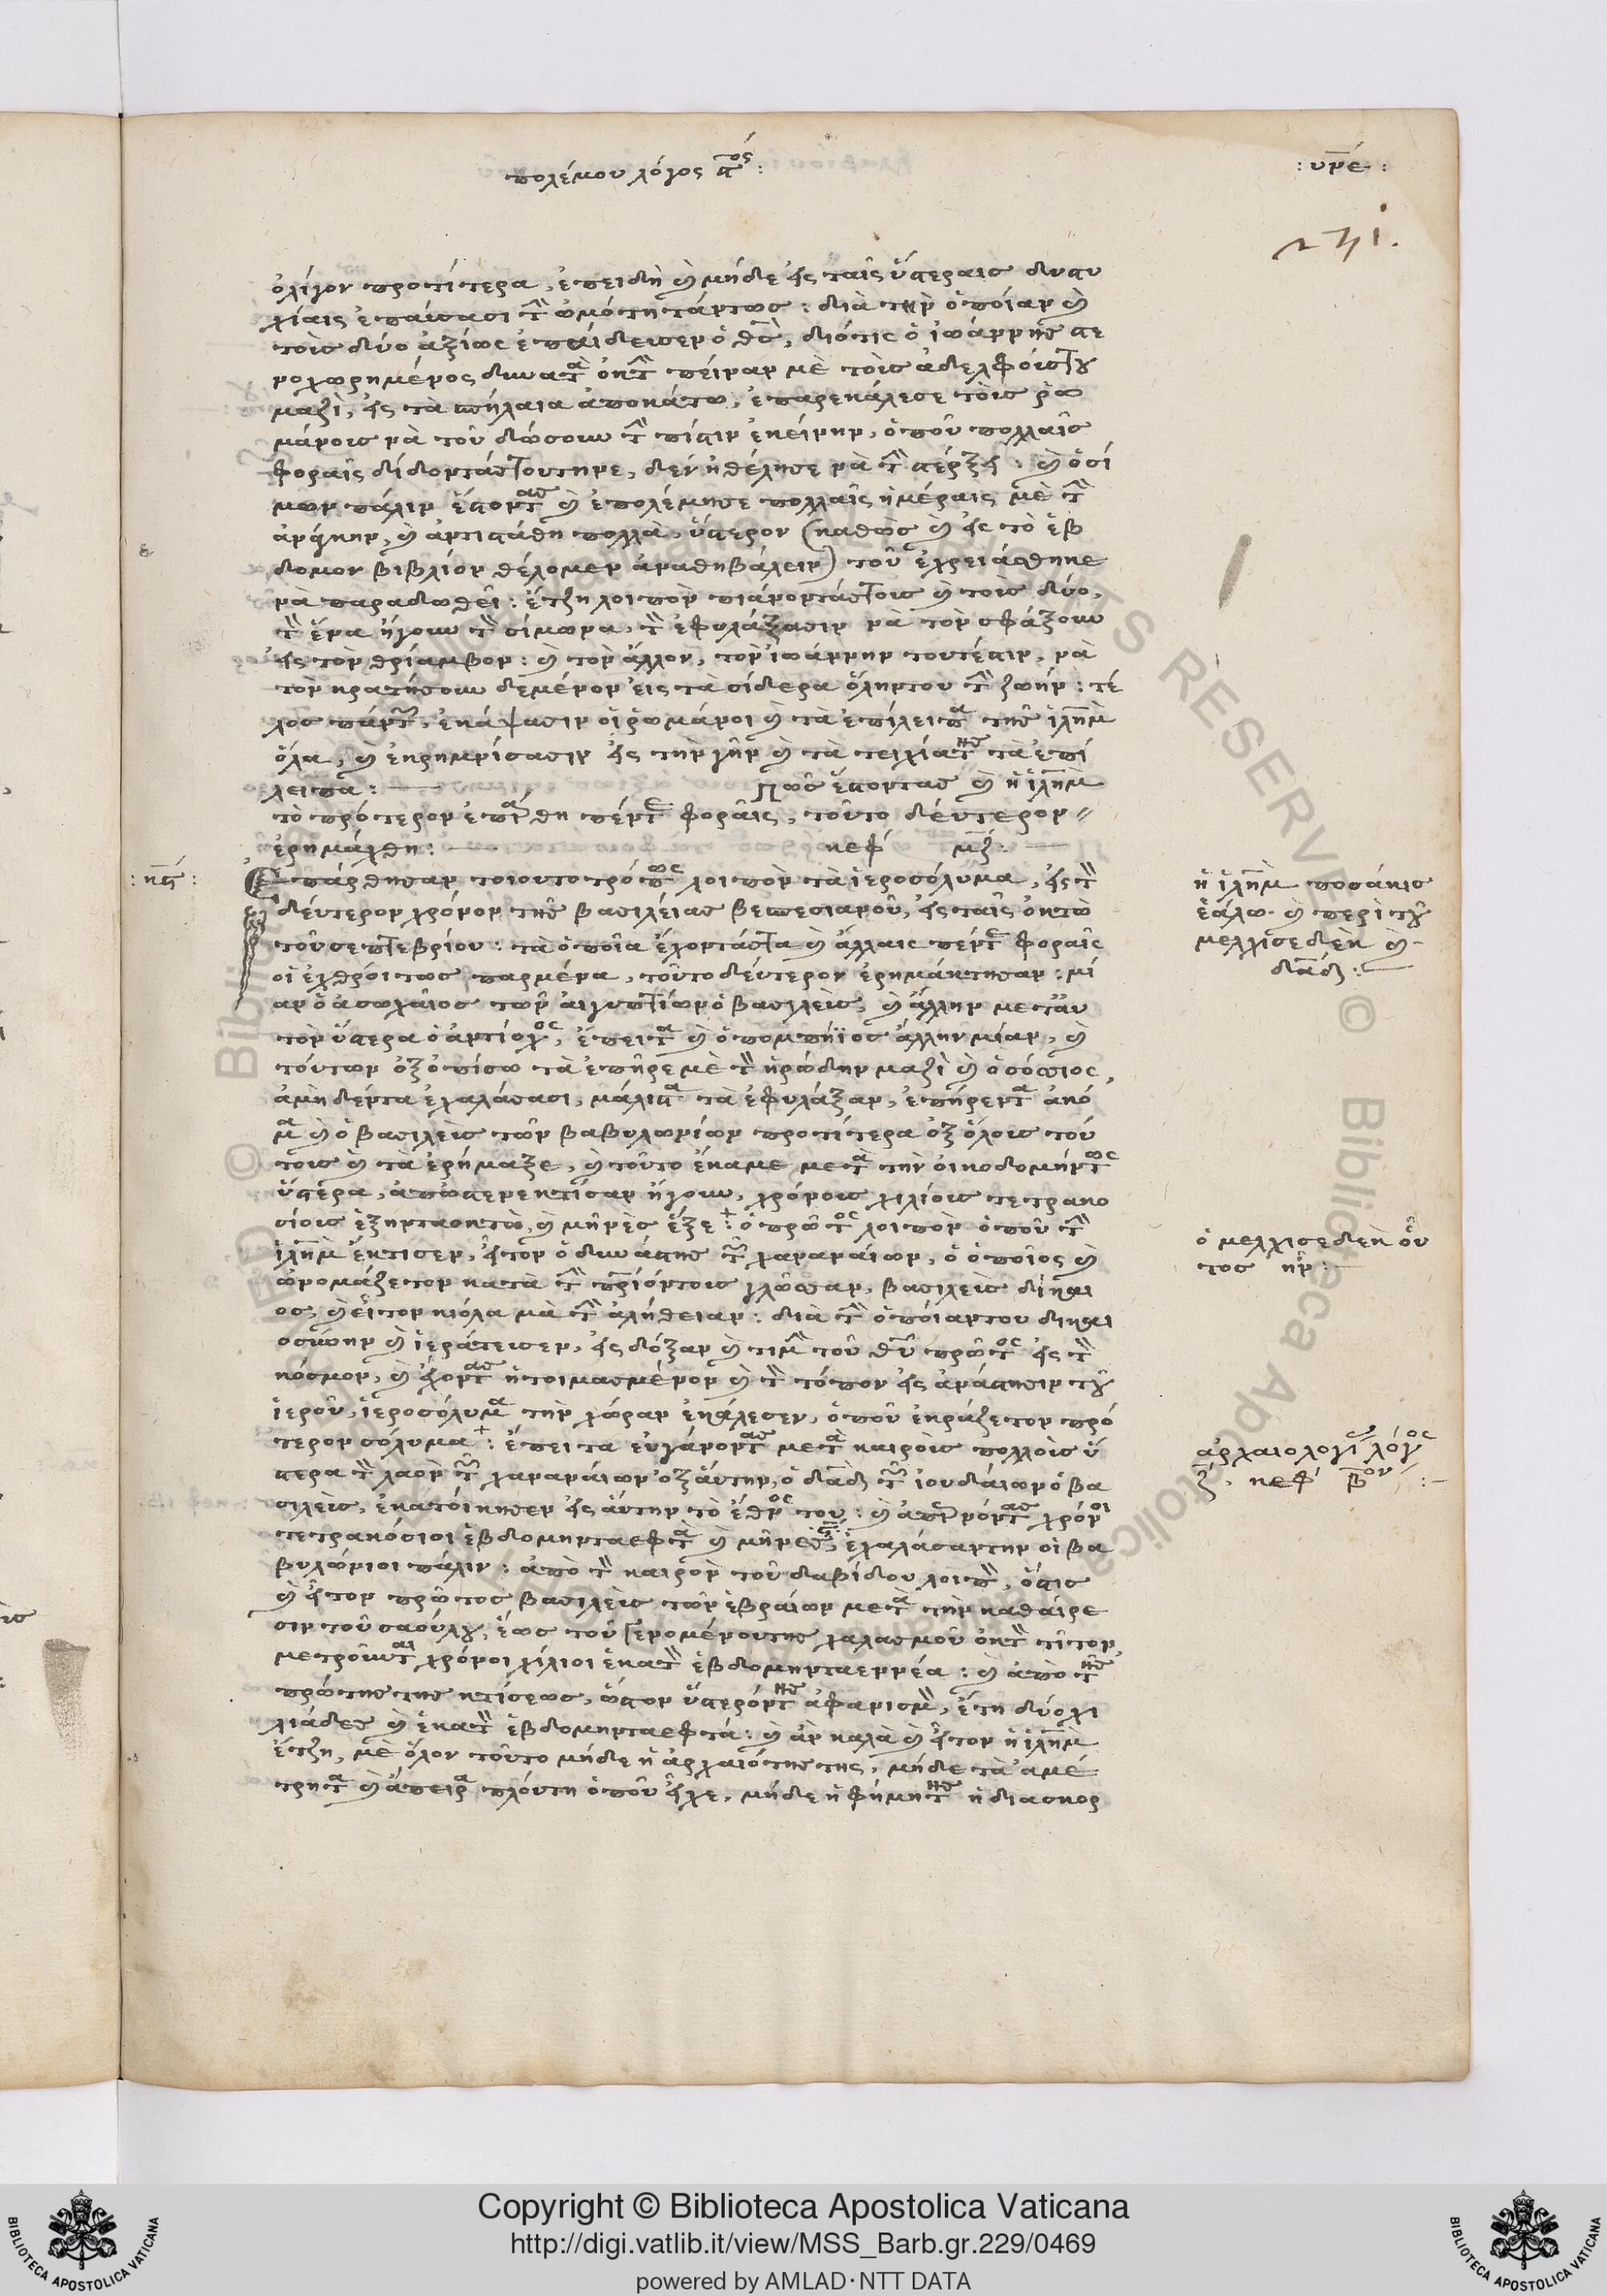 πολέμου λόγος ϛ̅ος :
: υπε :
231.
ὀλίγον προτίτερα, ἐπειδὴ ὲ μήδε εἰς ταῖς ὕστεραις δυστυ
χίαις ἐπαύσασι τὴν ὠμότητάντως : διὰ τὴν ὁποίαν ὲ
τοὺς δύο ἀξίως ἐπαίδευσεν ὁ θς̅, διότις ὁ ἰωάννης στε
νοχωρημένος δυνατὰ ἐκ τὴν πείναν μὲ τοὺς ἀδελφούςτου
μαζὶ, εἰς τὰ σπήλαια ἀποκάτω, ἐπαρεκάλεσε τοὺς ῥω
μάνους νὰ τοῦ δώσουν τὴν πίστιν ἐκείνην, ὁποῦ πολλαῖς
φοραῖς δίδοντάςτουτηνε, δὲν ἠθέλησε νὰ τὴν στέρξει : ὲ ὁ σί
μων πάλιν ἔστοντας ὲ ἐπολέμησε πολλαῖς ἡμέραις μὲ τὴν
ἀνάγκην, ὲ ἀντιστάθη πολλὰ, ὕστερον (καθὼς ὲ εἰς τὸ ἕβ
δομον βιβλίον θέλομεν ἀναθηβάλειν) τοῦ ἐχρειάσθηκε
νὰ παραδωθεῖ : ἔτζη λοιπὸν πιάνοντάςτους ὲ τοὺς δύο,
τὸν ἕνα ἤγουν τὸν σίμωνα, τὸν ἐφυλάξασιν νὰ τὸν σφάξουν
εἰς τὸν θρίαμβον : ὲ τὸν ἄλλον, τὸν ἰωάννην τουτέστιν, νὰ
τὸν κρατήσουν δεμένον εἰς τὰ σίδερα ὅληντου τὴν ζωήν : τέ
λος πάντων, ἐκάψασιν οἱ ῥωμάνοι ὲ τὰ ἐπίλειπα τῆς ἱλη̅μ
ὅλα, ὲ ἐκρημνίσασιν εἰς τὴν γῆν ὲ τὰ τειχίατης τὰ ἐπί
λειπα : — Πῶς ἔστοντας ὲ ἡ ἱλη̅μ
τὸ πρότερον ἐπάρθη πέντε φοραῖς, τοῦτο δεύτερον
ἐρημάχθη : — κεφ μζ̅ : —
: κϛ̅ :
Ἐπάρθησαν τοιουτοτρόπως λοιπὸν τὰ ἱεροσόλυμα, εἰς τὸν
δεύτερον χρόνον τῆς βασιλείας βεσπεσιανοῦ, εἰς ταῖς ὀκτὼ
τοῦ σεπτεβρίου : τὰ ὁποῖα ἔχοντάςτα ὲ ἄλλαις πέντε φοραῖς
οἱ ἐχθροίτως παρμένα, τοῦτο δεύτερον ἐρημάκτησαν : μί
αν ὁ ἀσωχαῖος τῶν αἰγυπτίων ὁ βασιλεὺς, ὲ ἄλλην μεταὺ
τὸν ὕστερα ὁ ἀντίοχος, ἔπειτα ὲ ὁ πομπήϊος ἄλλην μίαν, ὲ
τούτων ὀξοπίσω τὰ ἐπῆρε μὲ τὸν ἡρώδην μαζὶ ὲ ὁ σόσσιος,
ἀμὴ δέντα ἐχαλάσασι, μάλιστα τὰ ἐφυλάξαν, ἐπήρεντα ἀκό
μα ὲ ὁ βασιλεὺς τῶν βαβυλωνίων προτίτερα ὀξ ὅλους τού
τους ὲ τὰ ἐρήμαξε, ὲ τοῦτο ἔκαμε μετὰ τὴν οἰκοδομήντως
ὕστερα, ἀπῶστερεκτίσαν ἤγουν, χρόνους χιλίους τετρακο
σίους ἑξηνταοκτὼ, ὲ μῆνες ἕξε : ὁ πρῶτος λοιπὸν ὁποῦ τὴν
ἱλη̅μ ἔκτισεν, ἦτον ὁ δυνάστης τῶν χαναναίων, ὁ ὁποῖος ὲ
ὠνομάζετον κατὰ τὴν πατριόντους γλῶσσαν, βασιλεὺς δίκαι
ος, ὲ εἶτον κιόλα μὰ τὴν ἀλήθειαν : διὰ τὴν ὁποίαντου δικαι
οσύνην ὲ ἱεράτευσεν, εἰς δόξαν ὲ τιμὴν τοῦ θυ̅ πρῶτος εἰς τὸν
κόσμον, ὲ ἔχοντας ἡτοιμασμένον ὲ τὸν τόπον εἰς ἀνάστησιν τοῦ
ἱεροῦ, ἱεροσόλυμα τὴν χώραν ἐκάλεσεν, ὁποῦ ἐκράζετον πρό
τερον σόλυμα : ἔπειτα εὐγάνοντας μετὰ καιροὺς πολλοὺς ὕ
στερα τὸν λαὸν τῶν χαναναίων ὀξ αὔτην, ὁ δα̅δ τῶν ἰουδαίων ὁ βα
σιλεὺς, ἐκατοίκησεν εἰς αὔτην τὸ ἔθνος του : ὲ ἀπερνόντας χρόνοι
τετρακόσιοι ἑβδομηνταεφτὰ ὲ μῆνες ἕξε, ἐχαλάσαντην οἱ βα
βυλώνιοι πάλιν : ἀπὸ τὸν καιρὸν τοῦ δαβίδου λοιπὸν, ὅστις
ὲ ἦτον πρῶτος βασιλεὺς τῶν ἑβραίων μετὰ τὴν καθαίρε
σιν τοῦ σαούλου, ἕως τοῦ γενομένουτης χαλασμοῦ ἐκ τὸν τῖτον,
μετροῦνται χρόνοι χίλιοι ἑκατὸν ἑβδομηνταεννέα : ὲ ἀπὸ τῆς
πρώτης της κτίσεως, ὥστον ὕστερόντης ἀφανισμὸν, ἔτη δύο χι
λιάδες ὲ ἑκατὸν ἑβδομηνταεφτά : ὲ ἂν καλὰ ὲ ἦτον ἡ ἱλη̅μ
ἔτζη, μὲ ὅλον τοῦτο μήδε ἡ ἀρχαιότης της, μήδε τὰ ἀμέ
τρητα ὲ ἄπειρα πλούτη ὁποῦ εἶχε, μήδε ἡ φήμητης ἡ διασκορ
ἡ ἱλη̅μ ποσάκις
ἑάλω. ὲ περὶ τοῦ
μελχισεδὲκ ὲ
δα̅δ : —
ὁ μελχισεδὲκ οὗ
τος ἦν : —
ἀρχαιολογίας λόγος
ζ̅. κεφ β̅ον : —
Copyright © Biblioteca Apostolica Vaticana
http://digi.vatlib.it/view/MSS_Barb.gr.229/0469
powered by AMLAD·NTT DATA